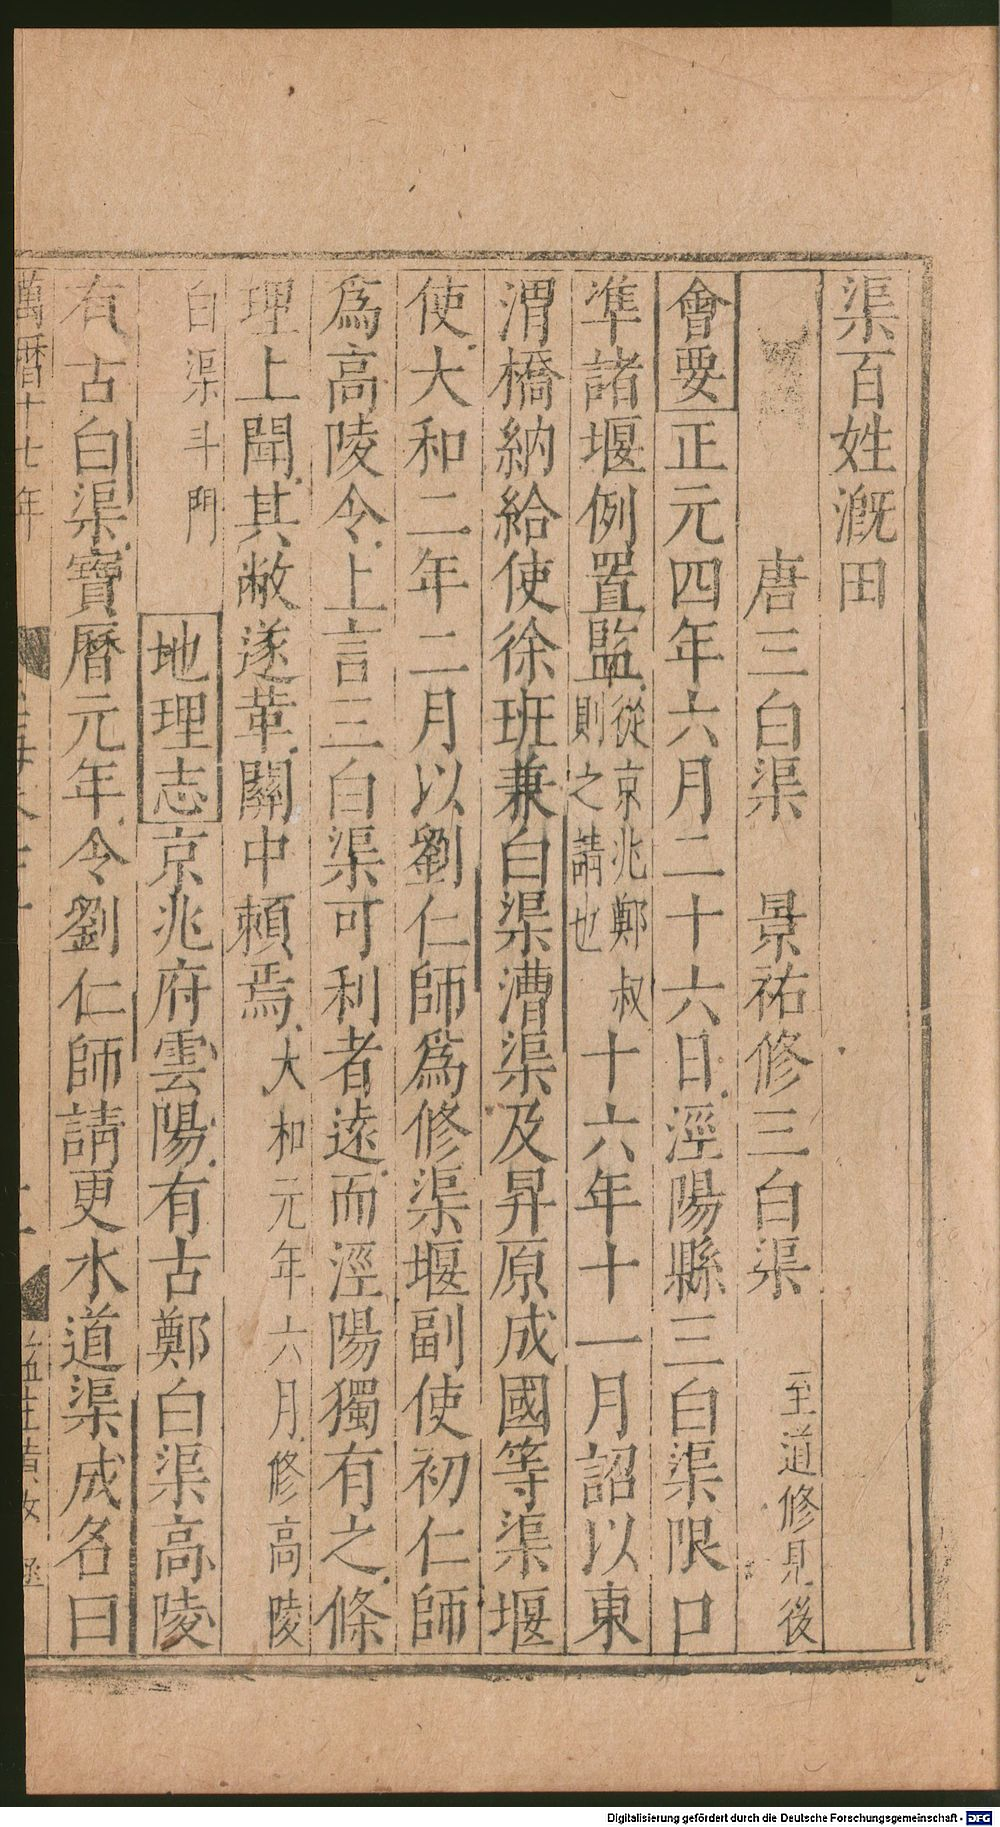 渠百姓溉田
唐三白渠　景祐修三白渠　至道修見後
會要正元四年六月二十六日涇陽縣三白渠限口
準諸堰例置監從京兆鄭叔則之請也十六年十一月詔以東
渭橋納給使徐班兼白渠漕渠及昇原成國等渠堰
使大和二年二月以劉仁師爲修渠堰副使初仁師
爲高陵令上言三白渠可利者遠而涇陽獨有之條
理上聞其敝遂革關中賴焉大和元年六月修高陵
白渠斗門　地理志京兆府雲陽有古鄭白渠高陵
有古白渠寶曆元年令劉仁師請更水道渠成名曰
萬曆十七年
Digitalisierung gefördert durch die Deutsche Forschungsgemeinschaft - DFG